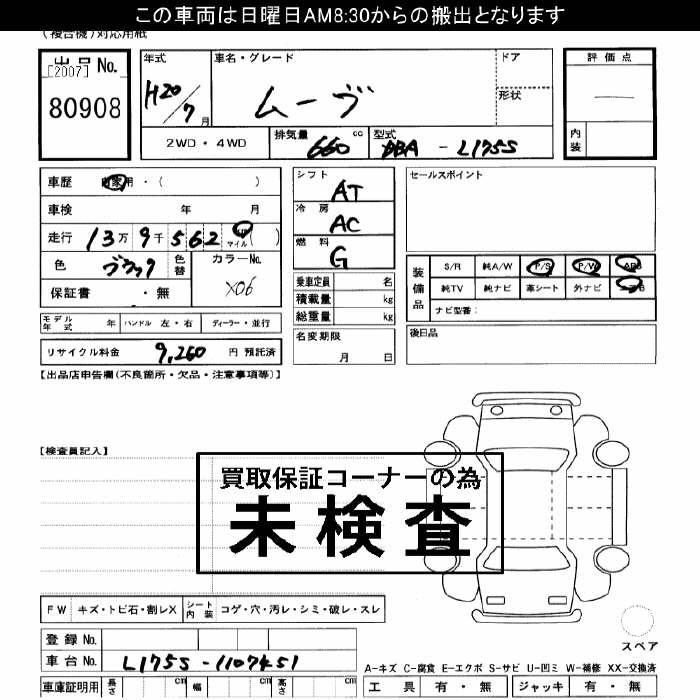 この車両は日曜日AM8:30からの搬出となります
(複合機)対応用紙
出品 No.
[2007]
80908
年式 H20/7月
車名・グレード ムーヴ
ドア
形状
評価点
―
内装
2WD・4WD
排気量 660 cc
型式 DBA - L175S
車歴 自家用・( )
車検 年 月
走行 13万9千562 km マイル ( )
色 ブラック 色替
カラーNo. X06
保証書 ・ 無
シフト AT
冷房 AC
燃料 G
乗車定員 名
積載量 kg
総重量 kg
名変期限 月 日
セールスポイント
装備品 S/R 純A/W P/S P/W ABS
純TV 純ナビ 革シート 外ナビ エアB
ナビ型番:
後日品
モデル年式 年 ハンドル 左・右 ディーラー・並行
リサイクル料金 9,260 円 預託済
【出品店申告欄(不良箇所・欠品・注意事項等)】
【検査員記入】
買取保証コーナーの為
未検査
FW キズ・トビ石・割レX シート内装 コゲ・穴・汚レ・シミ・破レ・スレ
スペア
登録 No.
車台 No. L175S-1107451
A-キズ C-腐食 E-エクボ S-サビ U-凹ミ W-補修 XX-交換済
車庫証明用 長さ cm 幅 cm 高さ cm
工具 有・無 ジャッキ 有・無